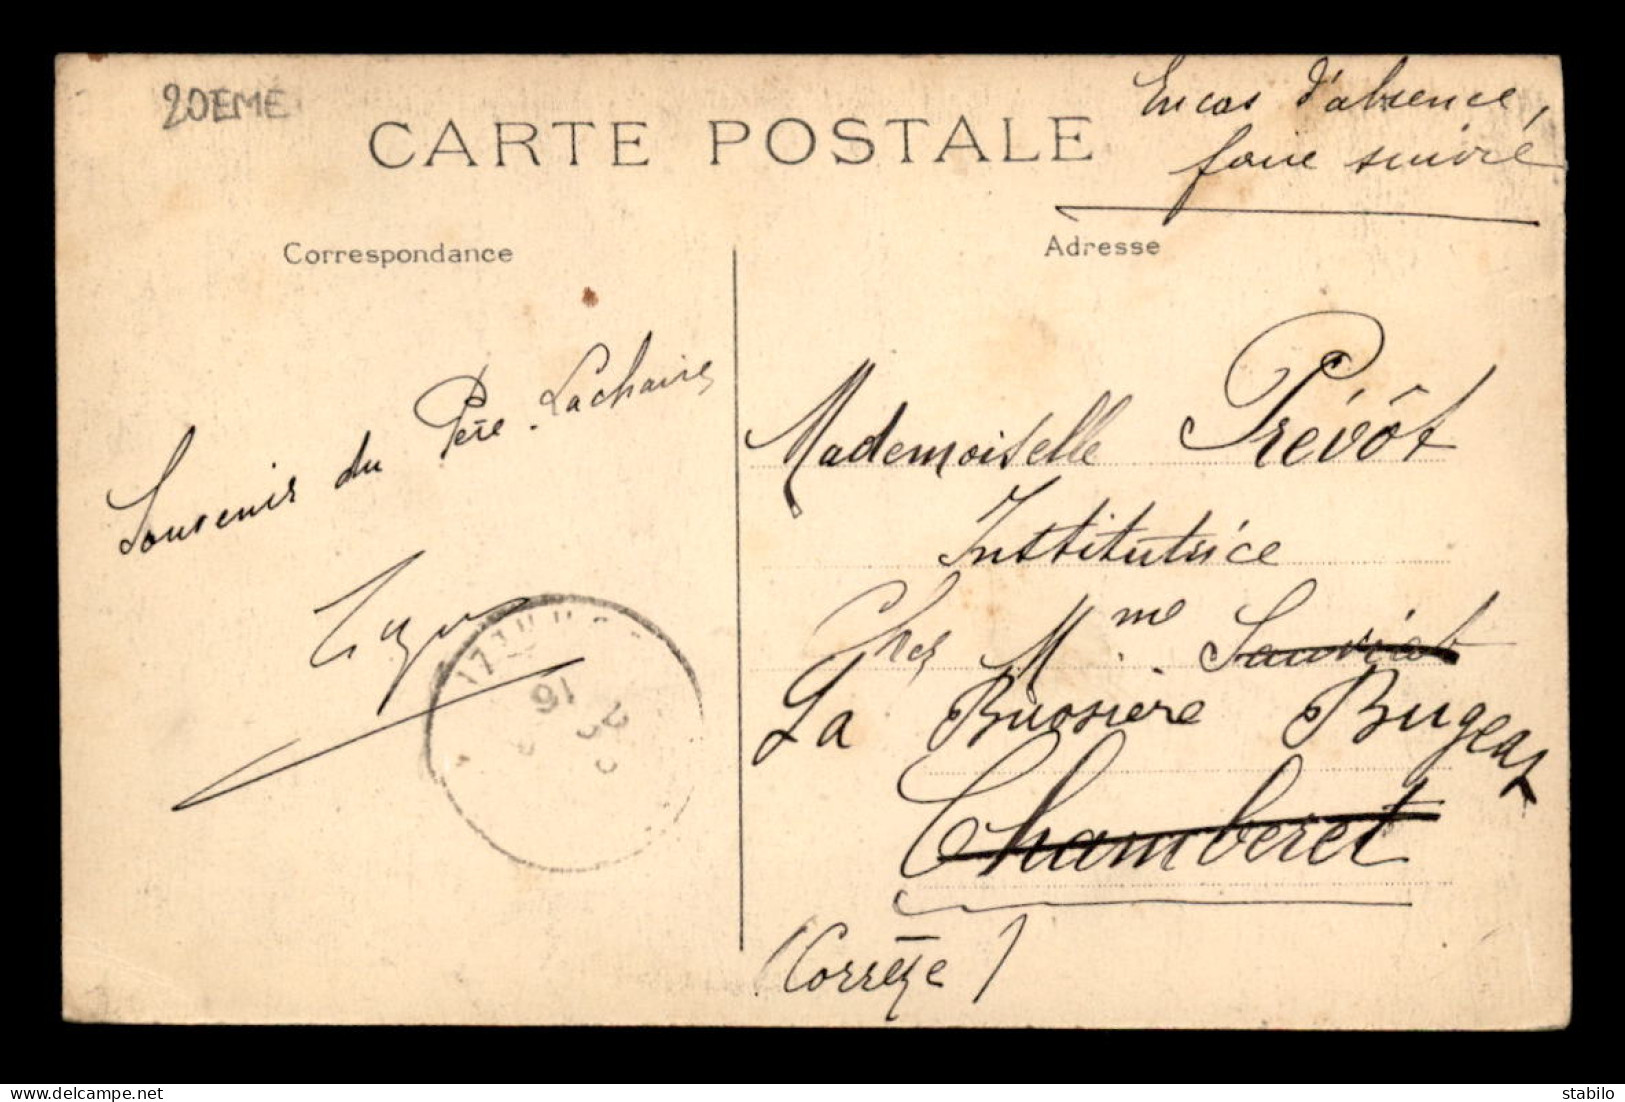 20EME
CARTE POSTALE
En cas d'absence,
faire suivre
Correspondance
Adresse
Souvenir du Père-Lachaise
Mademoiselle Prévôt
Institutrice
Chez Mme Sauviat
La Bussière Bugeat
Chamberet
(Corrèze)
www.delcampe.net
stabilo